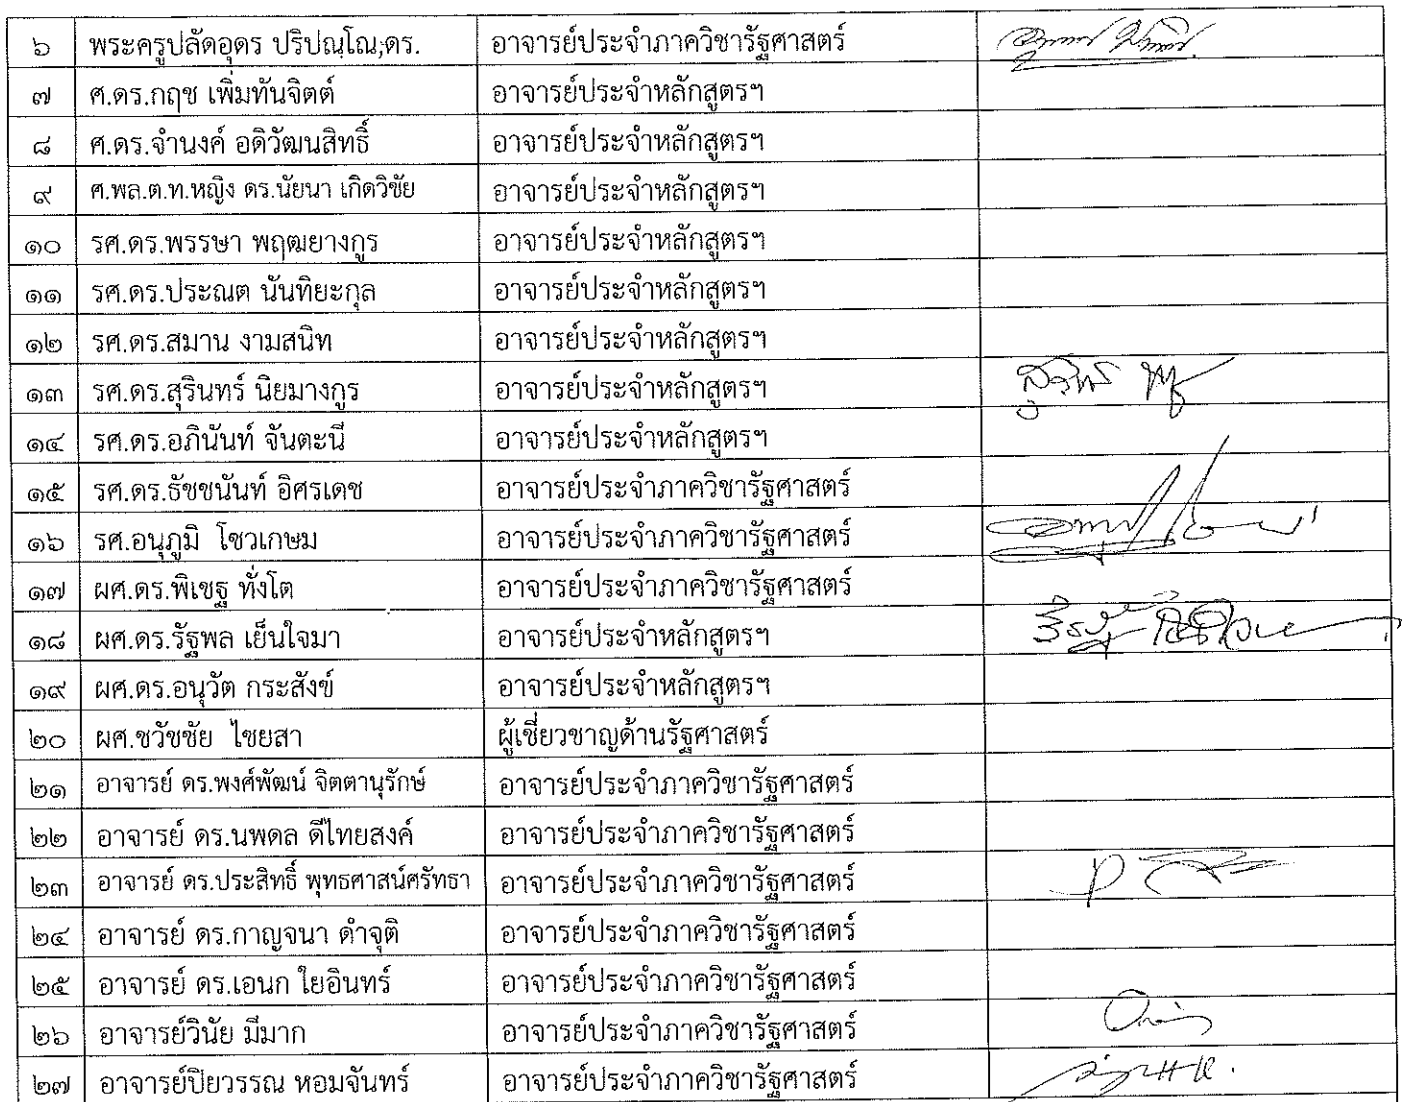 ๖ พระครูปลัดอุดร ปริปุณฺโณ,ดร. อาจารย์ประจำภาควิชารัฐศาสตร์
๗ ศ.ดร.กฤช เพิ่มทันจิตต์ อาจารย์ประจำหลักสูตรฯ
๘ ศ.ดร.จำนงค์ อดิวัฒนสิทธิ์ อาจารย์ประจำหลักสูตรฯ
๙ ศ.พล.ต.ท.หญิง ดร.นัยนา เกิดวิชัย อาจารย์ประจำหลักสูตรฯ
๑๐ รศ.ดร.พรรษา พฤฒยางกูร อาจารย์ประจำหลักสูตรฯ
๑๑ รศ.ดร.ประณต นันทิยะกุล อาจารย์ประจำหลักสูตรฯ
๑๒ รศ.ดร.สมาน งามสนิท อาจารย์ประจำหลักสูตรฯ
๑๓ รศ.ดร.สุรินทร์ นิยมางกูร อาจารย์ประจำหลักสูตรฯ
๑๔ รศ.ดร.อภินันท์ จันตะนี อาจารย์ประจำหลักสูตรฯ
๑๕ รศ.ดร.ธัชชนันท์ อิศรเดช อาจารย์ประจำภาควิชารัฐศาสตร์
๑๖ รศ.อนุภูมิ โซวเกษม อาจารย์ประจำภาควิชารัฐศาสตร์
๑๗ ผศ.ดร.พิเชฐ ทั่งโต อาจารย์ประจำภาควิชารัฐศาสตร์
๑๘ ผศ.ดร.รัฐพล เย็นใจมา อาจารย์ประจำหลักสูตรฯ
๑๙ ผศ.ดร.อนุวัต กระสังข์ อาจารย์ประจำหลักสูตรฯ
๒๐ ผศ.ชวัชชัย ไชยสา ผู้เชี่ยวชาญด้านรัฐศาสตร์
๒๑ อาจารย์ ดร.พงศ์พัฒน์ จิตตานุรักษ์ อาจารย์ประจำภาควิชารัฐศาสตร์
๒๒ อาจารย์ ดร.นพดล ดีไทยสงค์ อาจารย์ประจำภาควิชารัฐศาสตร์
๒๓ อาจารย์ ดร.ประสิทธิ์ พุทธศาสน์ศรัทธา อาจารย์ประจำภาควิชารัฐศาสตร์
๒๔ อาจารย์ ดร.กาญจนา ดำจุติ อาจารย์ประจำภาควิชารัฐศาสตร์
๒๕ อาจารย์ ดร.เอนก ใยอินทร์ อาจารย์ประจำภาควิชารัฐศาสตร์
๒๖ อาจารย์วินัย มีมาก อาจารย์ประจำภาควิชารัฐศาสตร์
๒๗ อาจารย์ปิยวรรณ หอมจันทร์ อาจารย์ประจำภาควิชารัฐศาสตร์